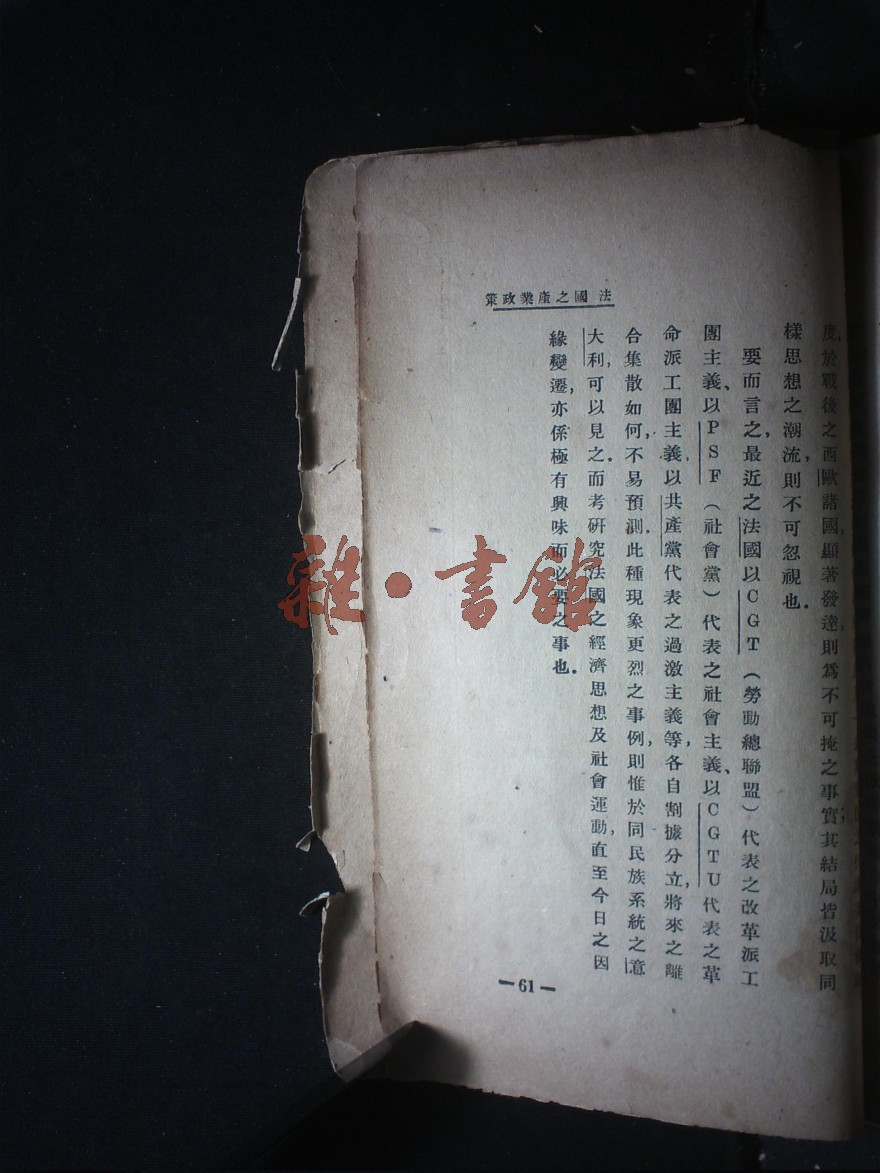 法國之產業政策
度,於戰後之西歐諸國,顯著發達,則爲不可掩之事實;其結局皆汲取同
樣思想之潮流,則不可忽視也.
要而言之,最近之法國以CGT(勞動總聯盟)代表之改革派工
團主義、以PSF(社會黨)代表之社會主義、以CGTU代表之革
命派工團主義,以共產黨代表之過激主義等,各自割據分立,將來之離
合集散如何,不易預測.此種現象更烈之事例,則惟於同民族系統之意
大利,可以見之.而考研究法國之經濟思想及社會運動,直至今日之因
緣變遷,亦係極有興味而必要之事也.
—61—
雜·書館